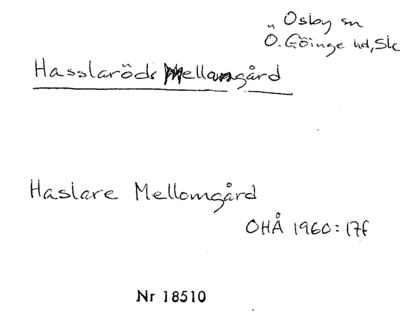 Osby sn
Ö. Göinge hd, Sk
Hasslaröds Mellomgård
Haslare Mellomgård
OHÅ 1960:17f
Nr 18510